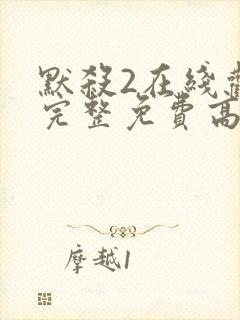 默殺2在綫
完整免費高
摩越1